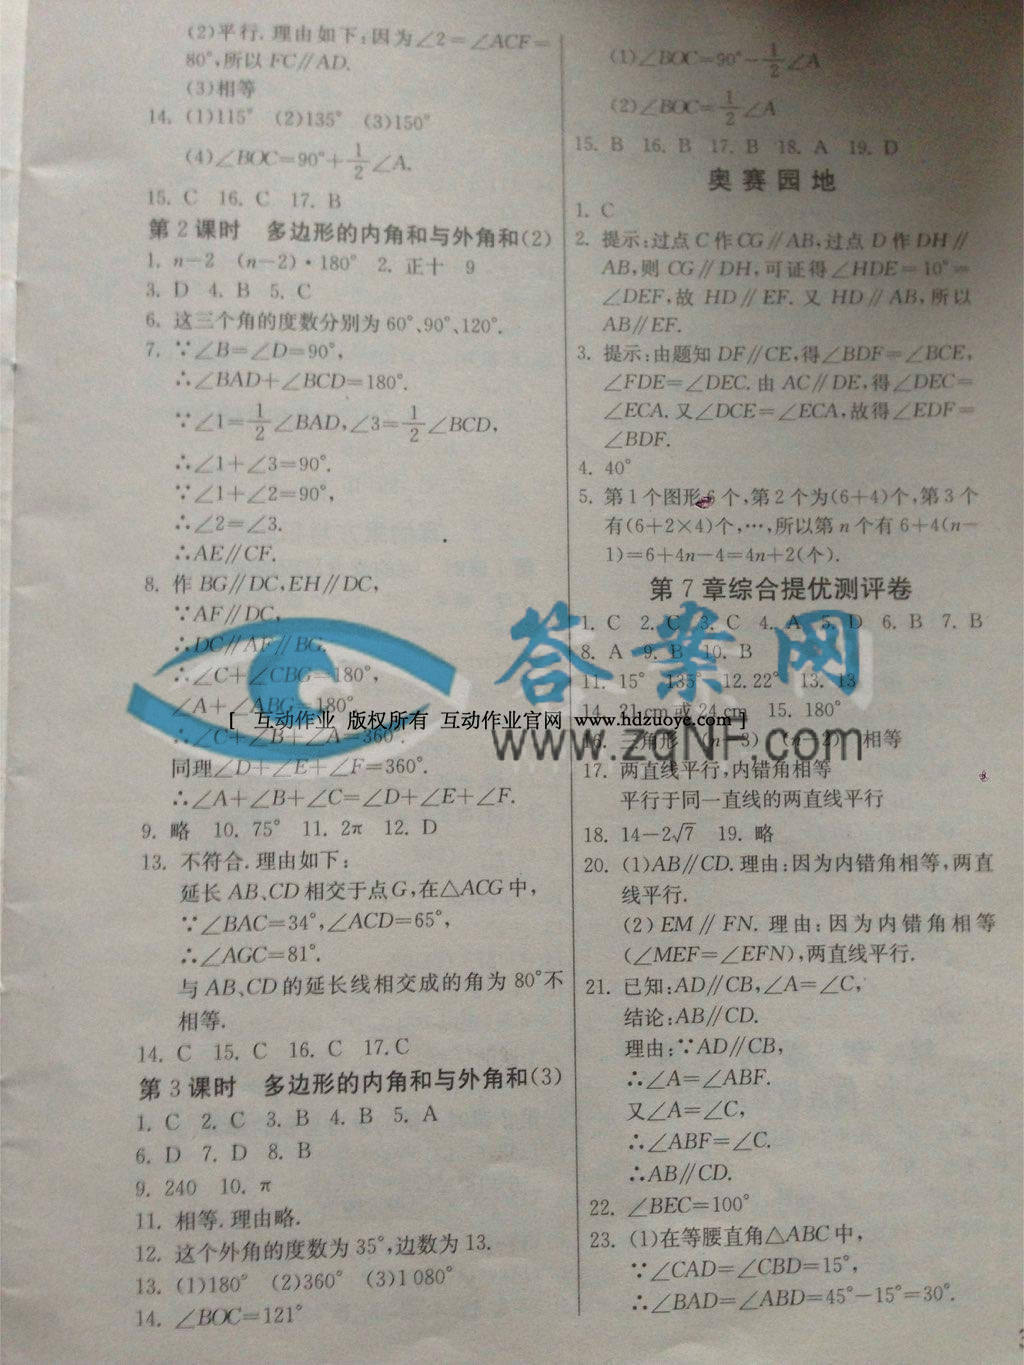 (2)平行.理由如下:因为∠2=∠ACF=
80°,所以FC∥AD.
(3)相等
14. (1)115° (2)135° (3)150°
(4)∠BOC=90°+1/2∠A.
15. C 16. C 17. B
第2课时 多边形的内角和与外角和(2)
1. n-2 (n-2)·180° 2. 正十 9
3. D 4. B 5. C
6. 这三个角的度数分别为60°、90°、120°.
7. ∵∠B=∠D=90°,
∴∠BAD+∠BCD=180°.
∵∠1=1/2∠BAD,∠3=1/2∠BCD,
∴∠1+∠3=90°.
∵∠1+∠2=90°,
∴∠2=∠3.
∴AE∥CF.
8. 作BG∥DC,EH∥DC,
∵AF∥DC,
∴DC∥AF∥BG.
∴∠C+∠CBG=180°,
∠A+∠ABG=180°
∴∠C+∠B+∠A=360°.
同理∠D+∠E+∠F=360°.
∴∠A+∠B+∠C=∠D+∠E+∠F.
9. 略 10. 75° 11. 2π 12. D
13. 不符合.理由如下:
延长AB、CD相交于点G,在△ACG中,
∵∠BAC=34°,∠ACD=65°,
∴∠AGC=81°.
与AB、CD的延长线相交成的角为80°不
相等.
14. C 15. C 16. C 17. C
第3课时 多边形的内角和与外角和(3)
1. C 2. C 3. B 4. B 5. A
6. D 7. D 8. B
9. 240 10. π
11. 相等.理由略.
12. 这个外角的度数为35°,边数为13.
13. (1)180° (2)360° (3)1 080°
14. ∠BOC=121°
(1)∠BOC=90°-1/2∠A
(2)∠BOC=1/2∠A
15. B 16. B 17. B 18. A 19. D
奥赛园地
1. C
2. 提示:过点C作CG∥AB,过点D作DH∥
AB,则CG∥DH,可证得∠HDE=10°=
∠DEF,故HD∥EF.又HD∥AB,所以
AB∥EF.
3. 提示:由题知DF∥CE,得∠BDF=∠BCE,
∠FDE=∠DEC.由AC∥DE,得∠DEC=
∠ECA.又∠DCE=∠ECA,故得∠EDF=
∠BDF.
4. 40°
5. 第1个图形6个,第2个为(6+4)个,第3个
有(6+2×4)个,…,所以第n个有6+4(n-
1)=6+4n-4=4n+2(个).
第7章综合提优测评卷
1. C 2. C 3. C 4. A 5. D 6. B 7. B
8. A 9. B 10. B
11. 15° 135° 12. 22° 13. 13
14. 21 cm或24 cm 15. 180°
相等
17. 两直线平行,内错角相等
平行于同一直线的两直线平行
18. 14-2√7 19. 略
20. (1)AB∥CD.理由:因为内错角相等,两直
线平行.
(2)EM∥FN.理由:因为内错角相等
(∠MEF=∠EFN),两直线平行.
21. 已知:AD∥CB,∠A=∠C,
结论:AB∥CD.
理由:∵AD∥CB,
∴∠A=∠ABF.
又∠A=∠C,
∴∠ABF=∠C.
∴AB∥CD.
22. ∠BEC=100°
23. (1)在等腰直角△ABC中,
∵∠CAD=∠CBD=15°,
∴∠BAD=∠ABD=45°-15°=30°.
答案网
www.zqNF.com
[ 互动作业 版权所有 互动作业官网 www.hdzuoye.com ]